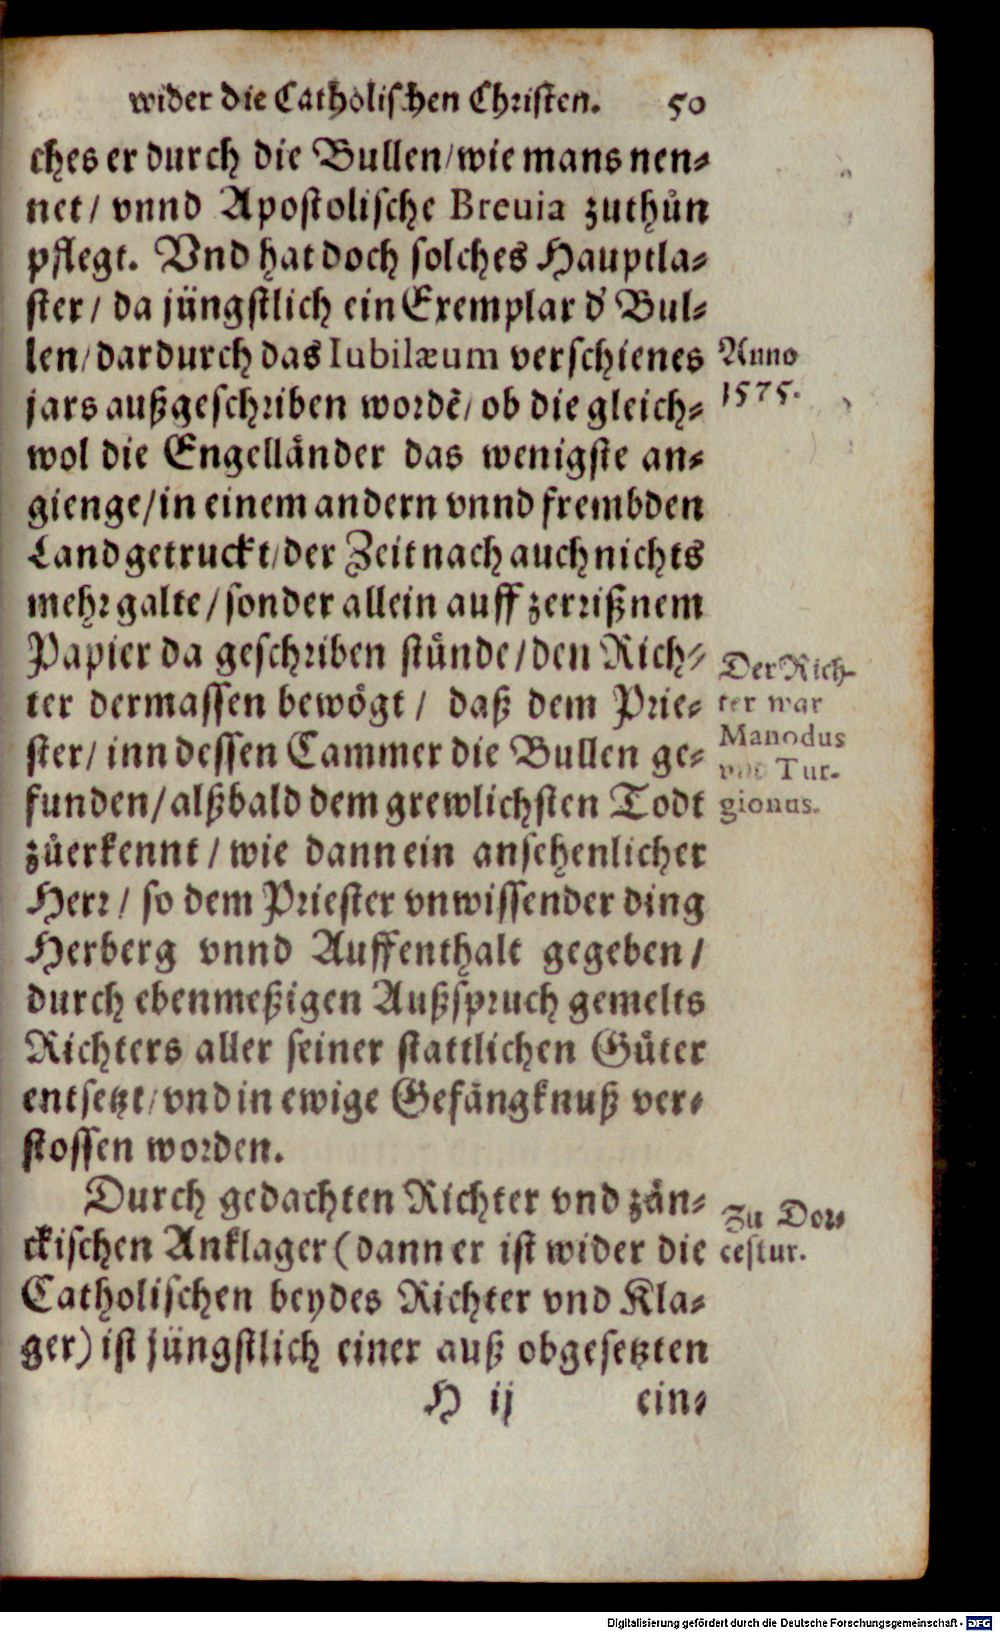 wider die Catholischen Christen. 50
ches er durch die Bullen/wie mans nen⸗
net/ vnnd Apostolische Breuia zuthůn
pflegt. Vnd hat doch solches Hauptla⸗
ster/ da jüngstlich ein Exemplar d' Bul⸗
len/dardurch das Iubilæum verschienes
jars außgeschriben wordẽ/ ob die gleich⸗
wol die Engelländer das wenigste an⸗
gienge/in einem andern vnnd frembden
Land getruckt/der Zeit nach auch nichts
mehr galte/sonder allein auff zerrißnem
Papier da geschriben stünde/den Rich⸗
ter dermassen bewögt/ daß dem Prie⸗
ster/ inn dessen Cammer die Bullen ge⸗
funden/alßbald dem grewlichsten Todt
zůerkennt/ wie dann ein ansehenlicher
Herr/ so dem Priester vnwissender ding
Herberg vnnd Auffenthalt gegeben/
durch ebenmeßigen Außspruch gemelts
Richters aller seiner stattlichen Güter
entsetzt/vnd in ewige Gefängknuß ver⸗
stossen worden.
Durch gedachten Richter vnd zän⸗
ckischen Anklager (dann er ist wider die
Catholischen beydes Richter vnd Kla⸗
ger) ist jüngstlich einer auß obgesetzten
H ij ein⸗
Anno
1575.
Der Rich⸗
ter war
Manodus
vnd Tur⸗
gionus.
Zu Dor⸗
cestur.
Digitalisierung gefördert durch die Deutsche Forschungsgemeinschaft - DFG